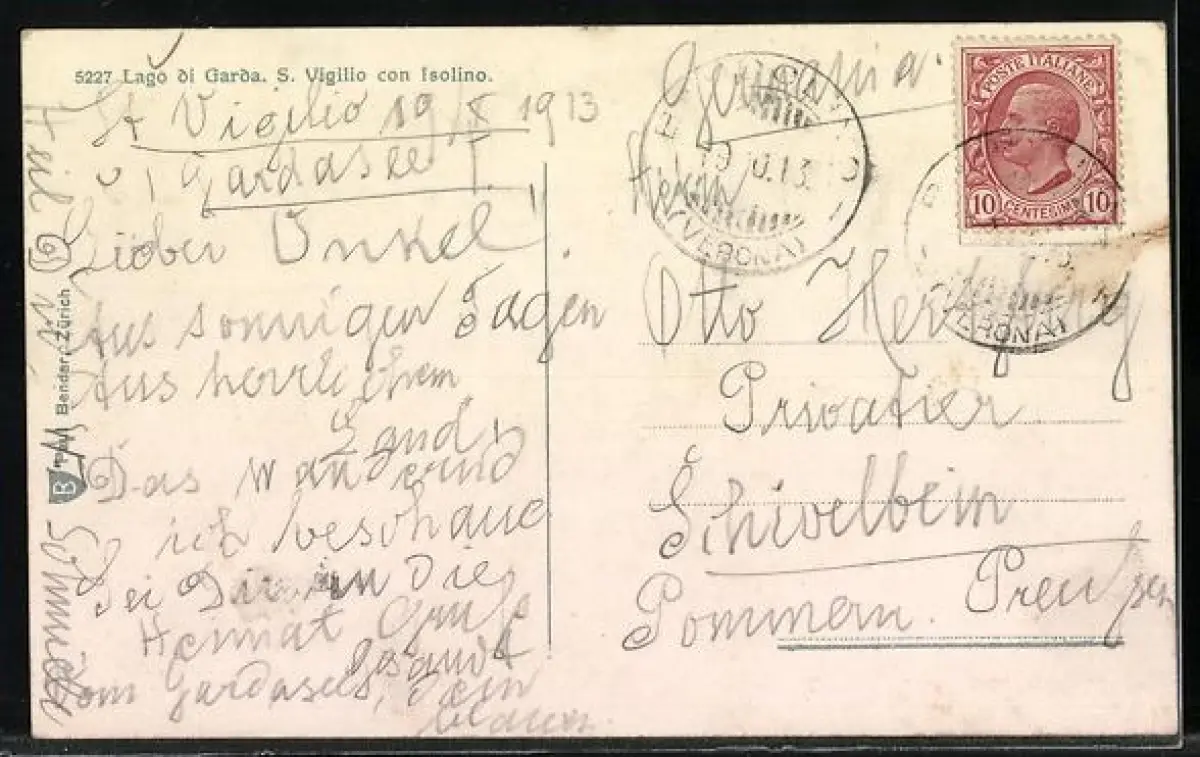 5227 Lago di Garda. S. Vigilio con Isolino.
St Vigilio 19/X 1913
Gardasee
Lieber Onkel!
Aus sonnigen Tagen
Aus herrlichem
Land,
Das wandernd
ich beschaue
Sei Dir in die
Heimat Gruß
gesandt
Vom Gardasee,
blauen.
Bender, Zürich
B
Germania.
Herrn
Otto
Privatier
Schivelbein
Pommern. Preußen
POSTE ITALIANE
10 CENTESIMI 10
(VERONA)
(VERONA)